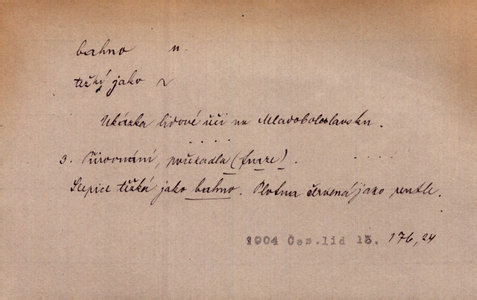 bahno n.
těžký jako ~
Ukázka lidové řeči na Mladoboleslavsku.
. . . .
3. Přirovnání, pořekadla (fraze). . . . .
Slepice těžká jako bahno. Plotna červená jako pentle.
1904 Čes.lid 13. 176, 24